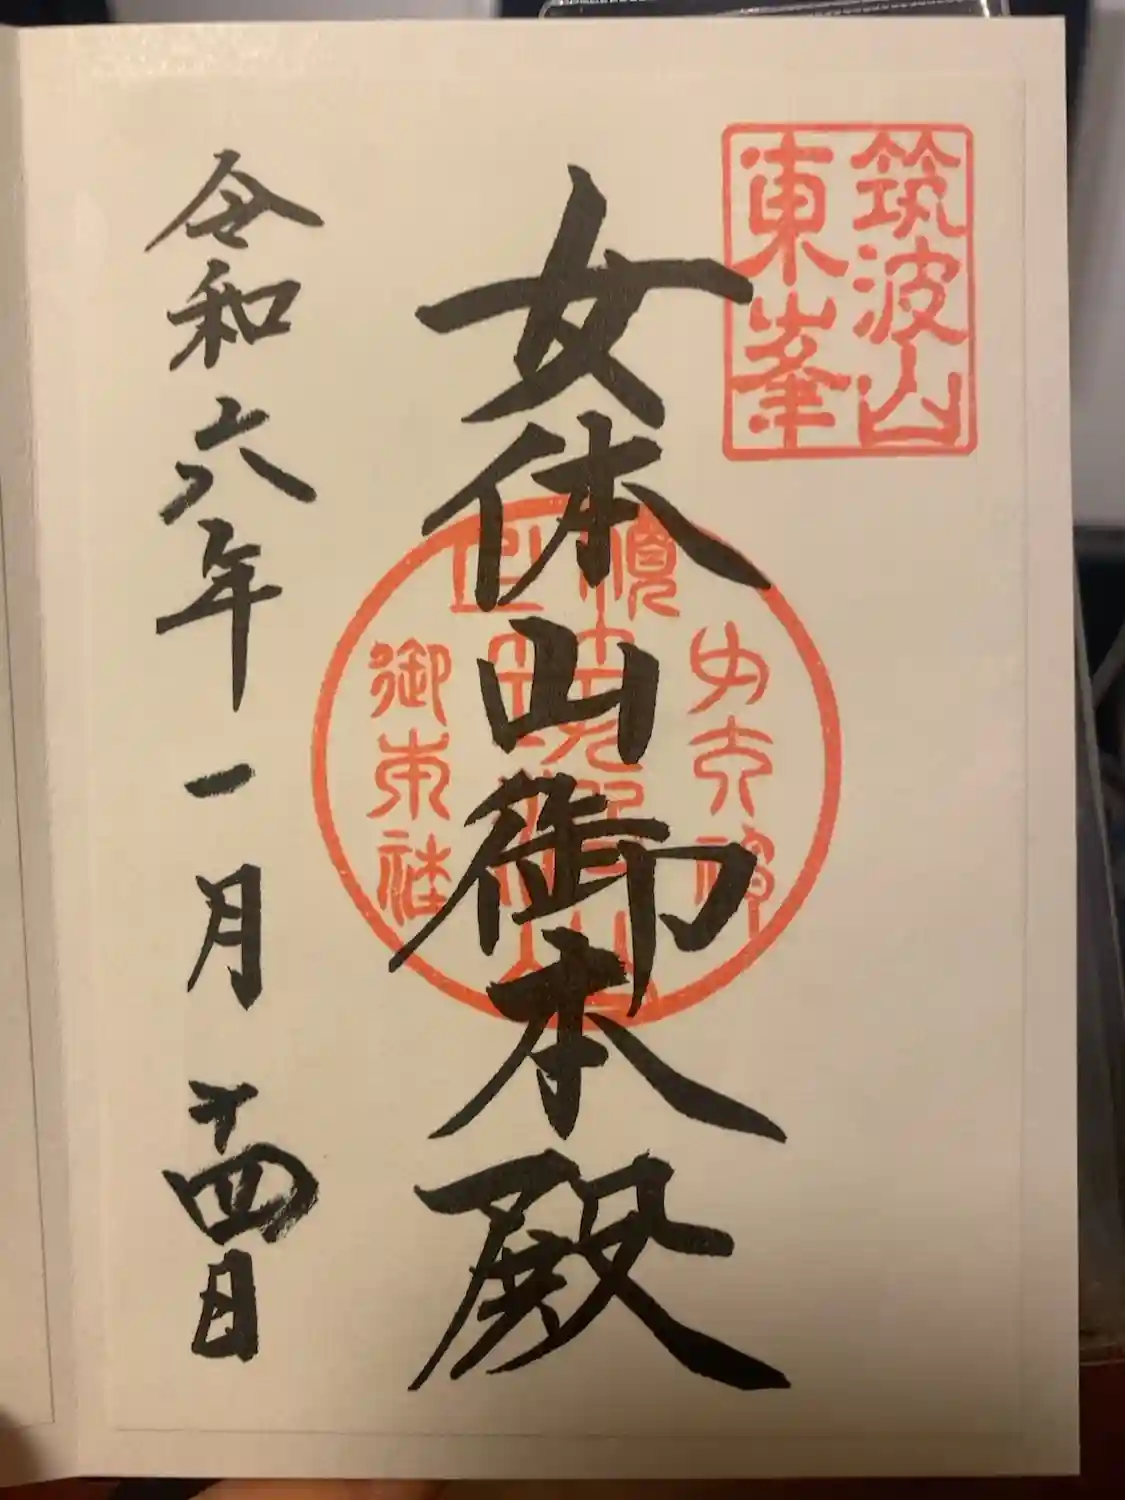 筑波山
東峯
女体山御本殿
御東社
令和六年一月十四日